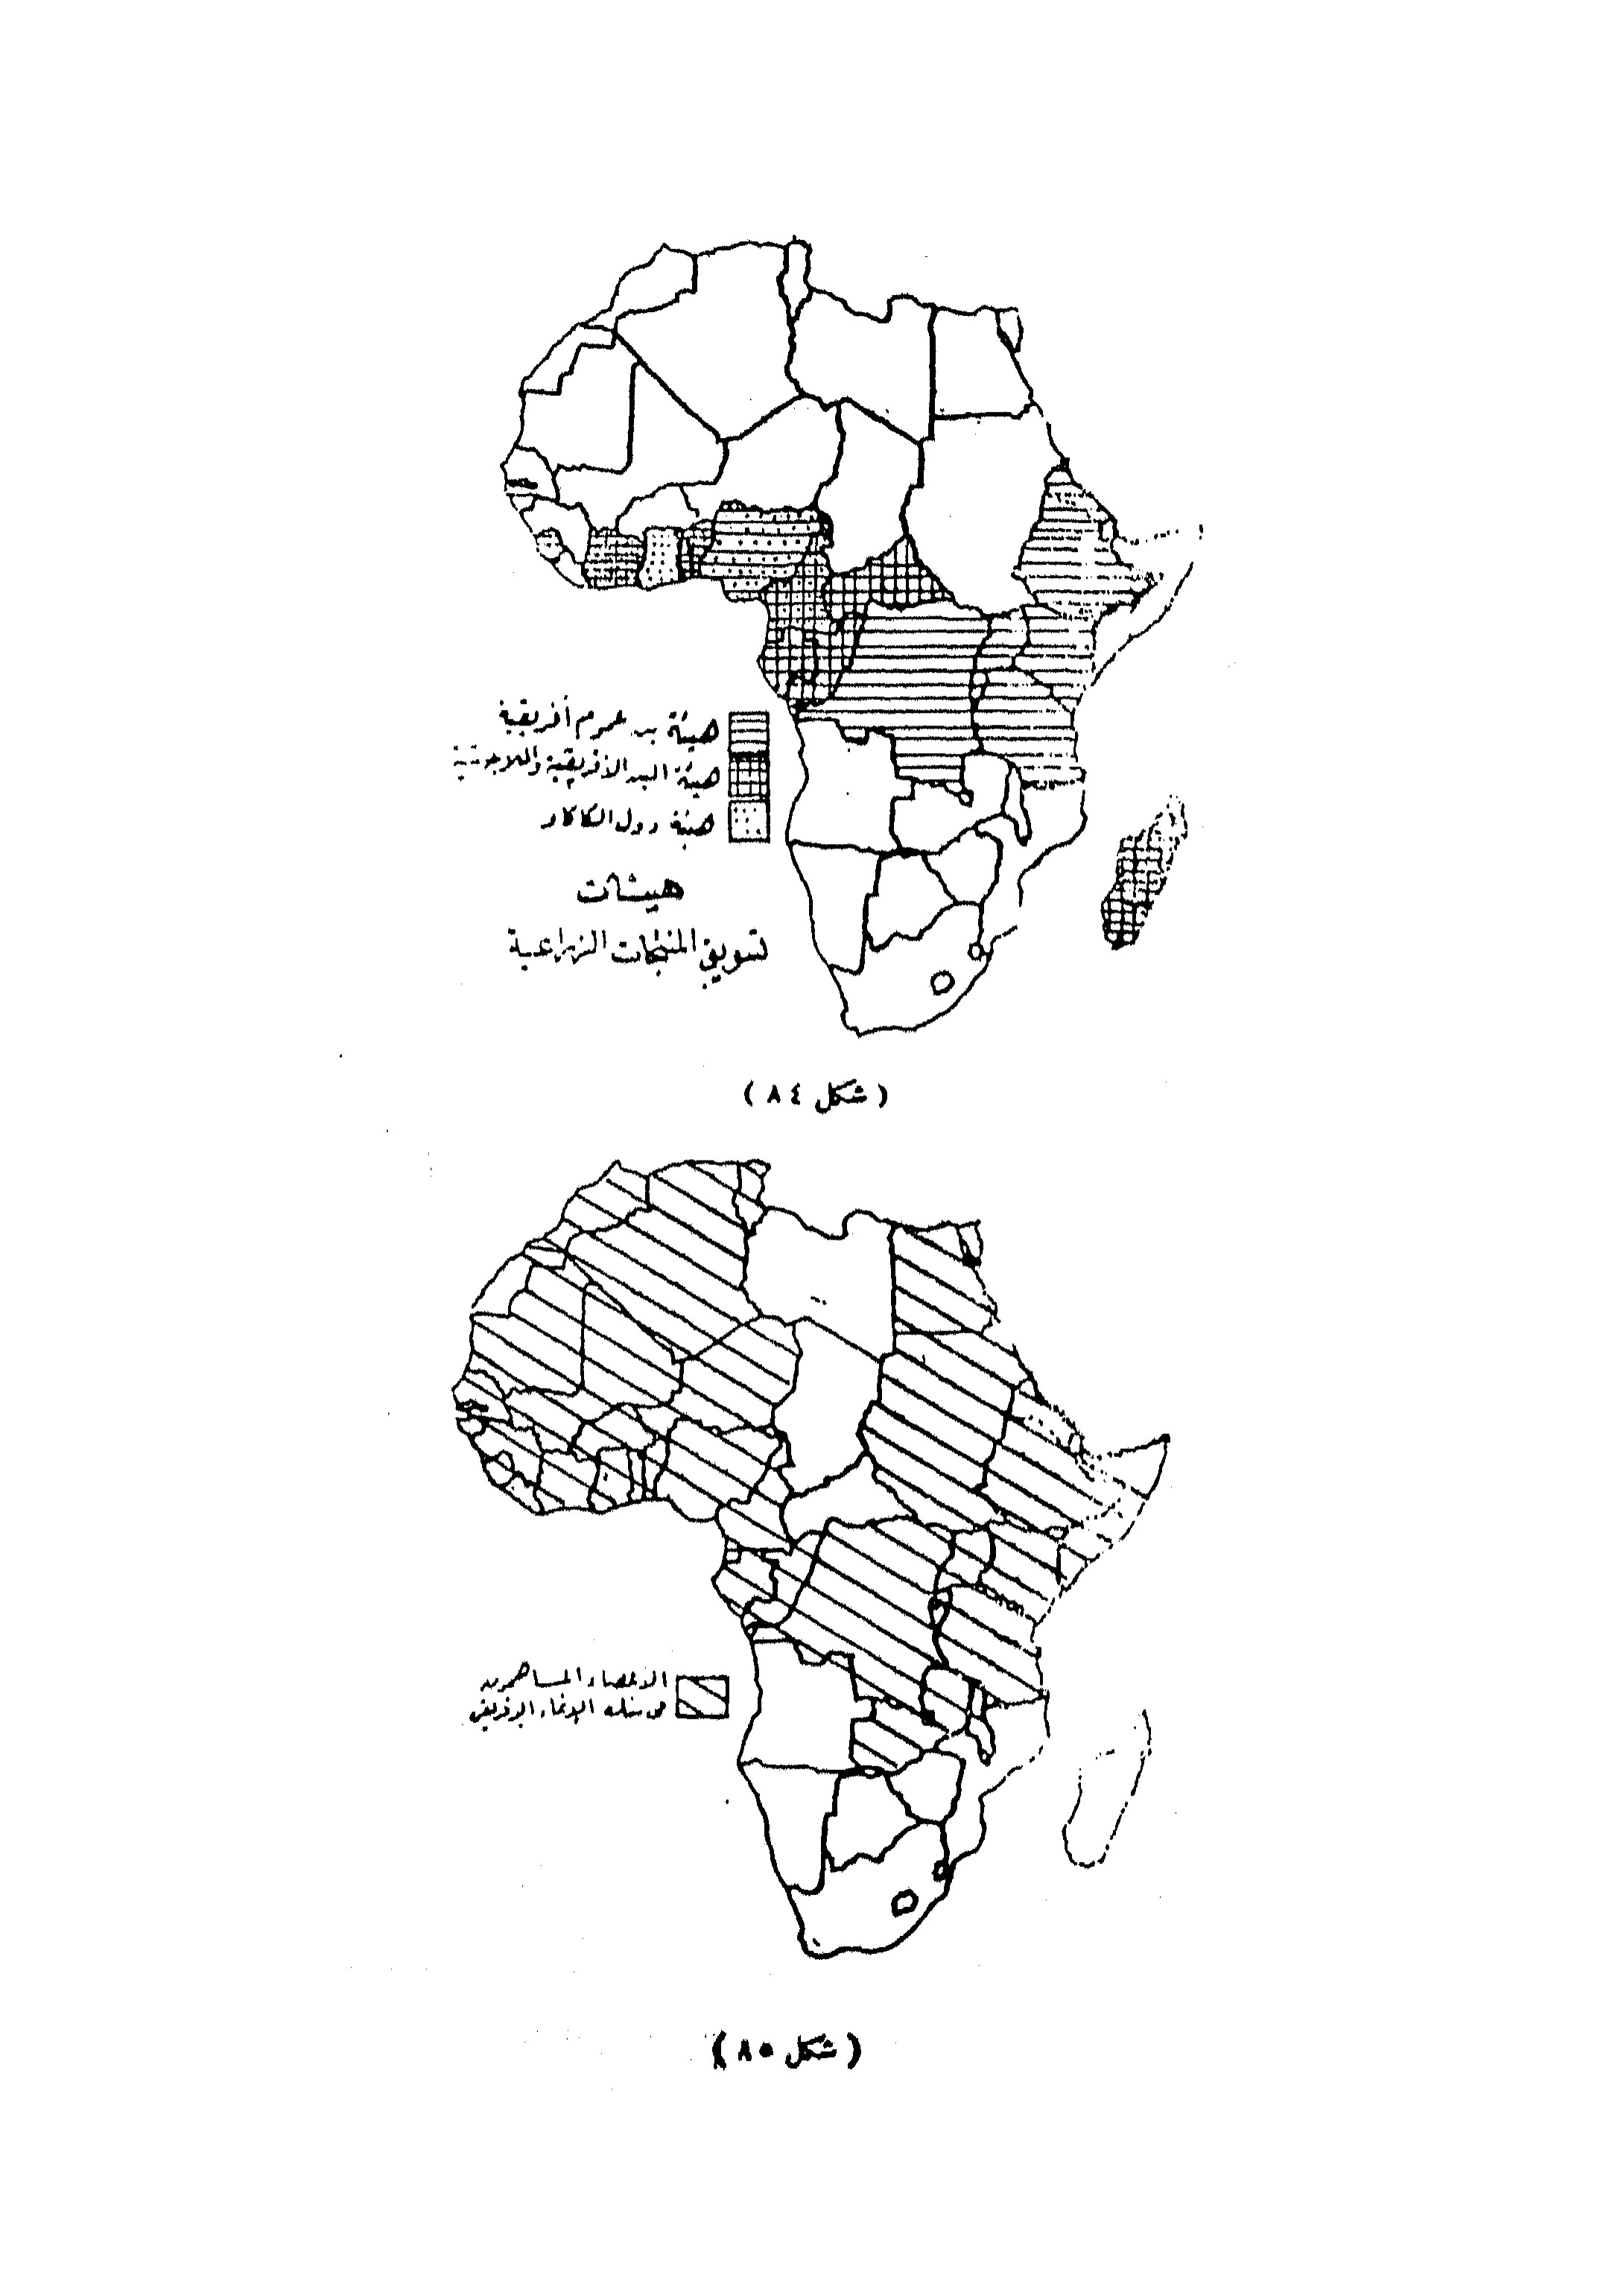 هيئة بن عموم أفريقية
هيئة البن الأفريقية والملاجاشية
هيئة دول الكاكاو
هيئات
تسويق المنتجات الزراعية
( شكل ٨٤ )
الأعضاء المساهمون
فى بنك الإنماء الإفريقى
( شكل ٨٥ )